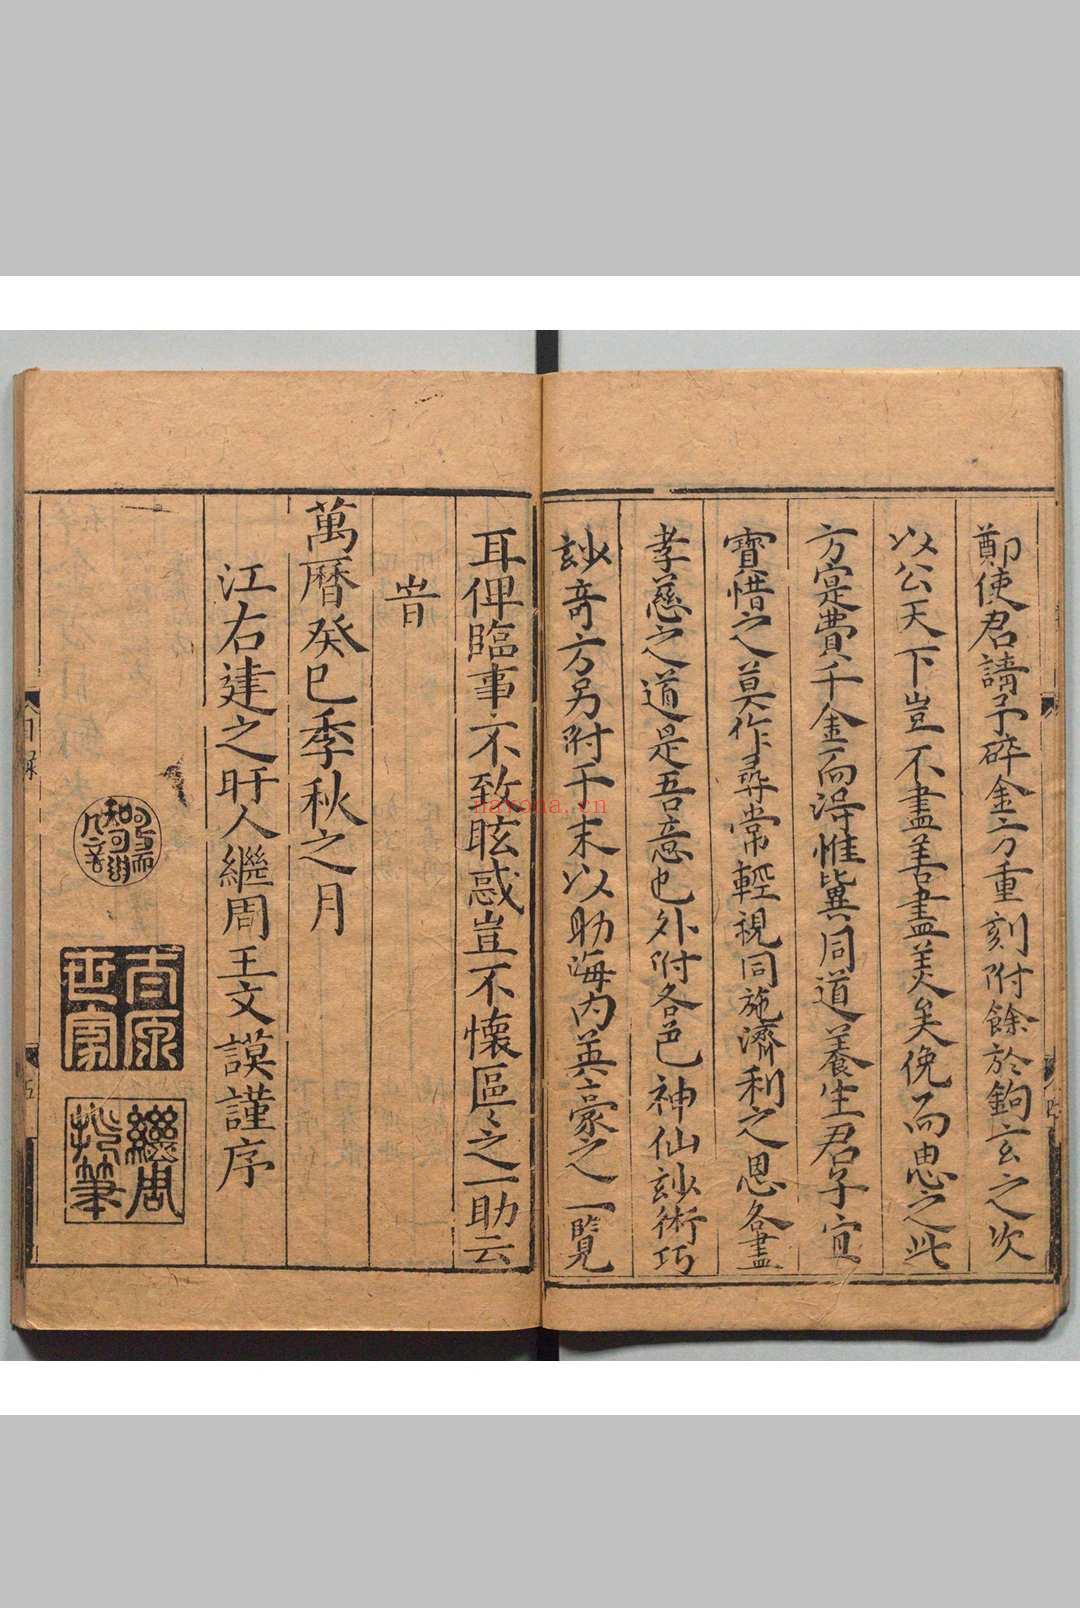 鄭使君請予碎金方重刻附餘於鉤玄之次
以公天下豈不盡善盡美矣俛而思之此
方寔費千金而得惟兾同道養生君子宜
寶惜之莫作尋常輕視同施濟利之恩各盡
孝慈之道是吾意也外附各邑神仙玅術巧
玅竒方另附于末以助海内英豪之一覧
耳俾臨事不致眩惑豈不懷區〻之一助云
旹
萬曆癸巳季秋之月
江右建之盱人繼周王文謨謹序
繼周
世家
nayona.cn